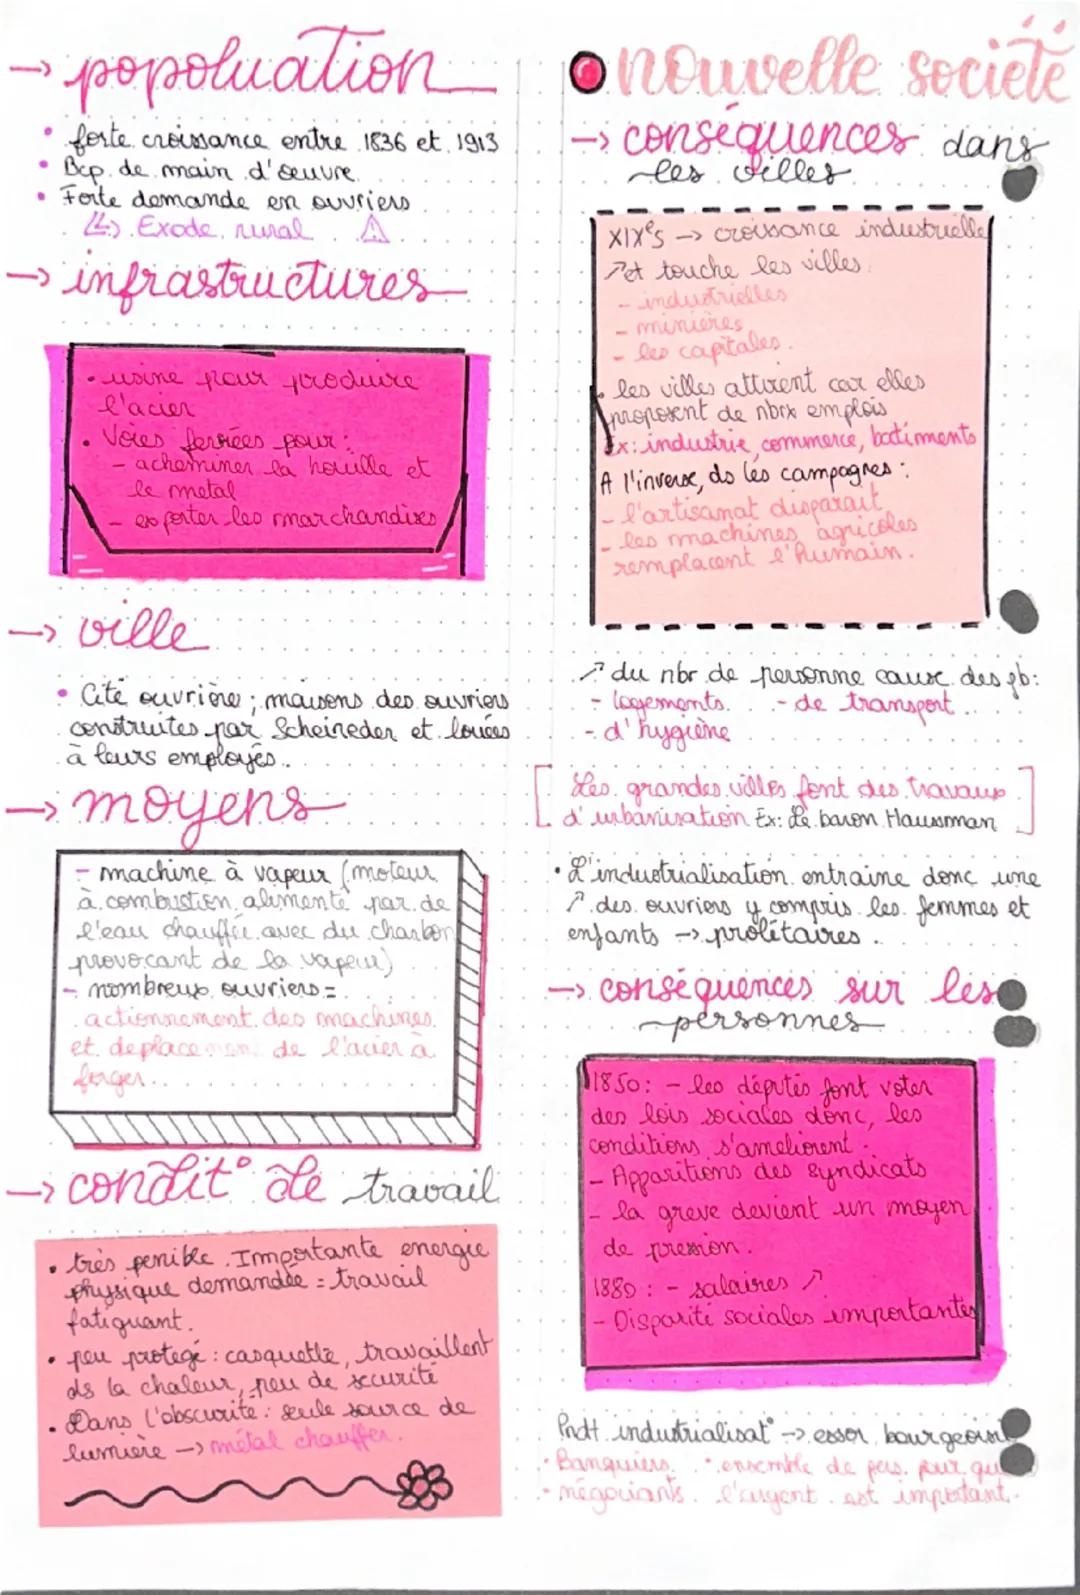 → popoluation
• forte croissance entre 1836 et 1913
• Bcp de main d'œuvre
• Forte demande en ouvriers
↳ Exode rural ⚠
→ infrastructures
• usine pour produire
l'acier
• Voies ferrées pour :
- acheminer la houille et
le metal
- exporter les marchandises
→ ville
• Cité ouvrière ; maisons des ouvriers
construites par Scheineder et louées
à leurs employés.
→ moyens
- machine à vapeur (moteur
à combustion alimenté par de
l'eau chauffée avec du charbon
provocant de la vapeur)
- nombreux ouvriers =
actionnement des machines
et deplacement de l'acier à
forger.
→ condit° de travail
• très penible. Immportante energie
physique demandée = travail
fatiguant.
• peu protegé : casquette, travaillent
ds la chaleur, peu de securité
• Dans l'obscurité : seule source de
lumière → métal chauffer.
nouvelle société
→ conséquences dans
les villes
XIXes → croissance industrielle
↗ et touche les villes :
- industrielles
- minières
- les capitales.
• les villes attirent car elles
proposent de nbrx emplois
Ex: industrie, commerce, batiments
A l'inverse, ds les campagnes :
- l'artisanat disparait
- les machines agricoles
remplacent l'humain.
↗ du nbr de personne cause des pb:
- logements - de transport
- d'hygiène
[Les grandes villes font des travaux
d'urbanisation Ex: Le baron Haussman]
• L'industrialisation entraine donc une
↗ des ouvriers y compris les femmes et
enfants → prolitaires.
→ conséquences sur les
personnes
1850: - les députés font voter
des lois sociales donc, les
conditions s'ameliorent.
- Apparitions des syndicats
- la greve devient un moyen
de pression.
1880 : - salaires ↗
- Disparité sociales importantes
Pndt industrialisat° → essor
• Banquiers • ensemble de pers. pur
• négociants l'argent est important.